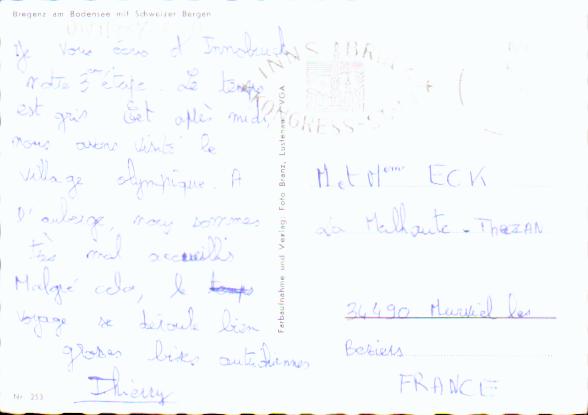 Bregenz am Bodensee mit Schweizer Bergen
Je vous écris d'Innsbruck
notre 3ème étape. Le temps
est gris. Cet après midi,
nous avons visité le
village olympique. A
l'auberge, nous sommes
très mal accueillis
Malgré cela, le
voyage se déroule bien
grosses bises autrichiennes
Thierry
Nr. 253
Farbaufnahme und Verlag: Foto Branz, Lustenau
INNSBRUCK
KONGRESS-
M et Mme ECK
La Malhaute - THEZAN
34490 Murviel les
Beziers
FRANCE